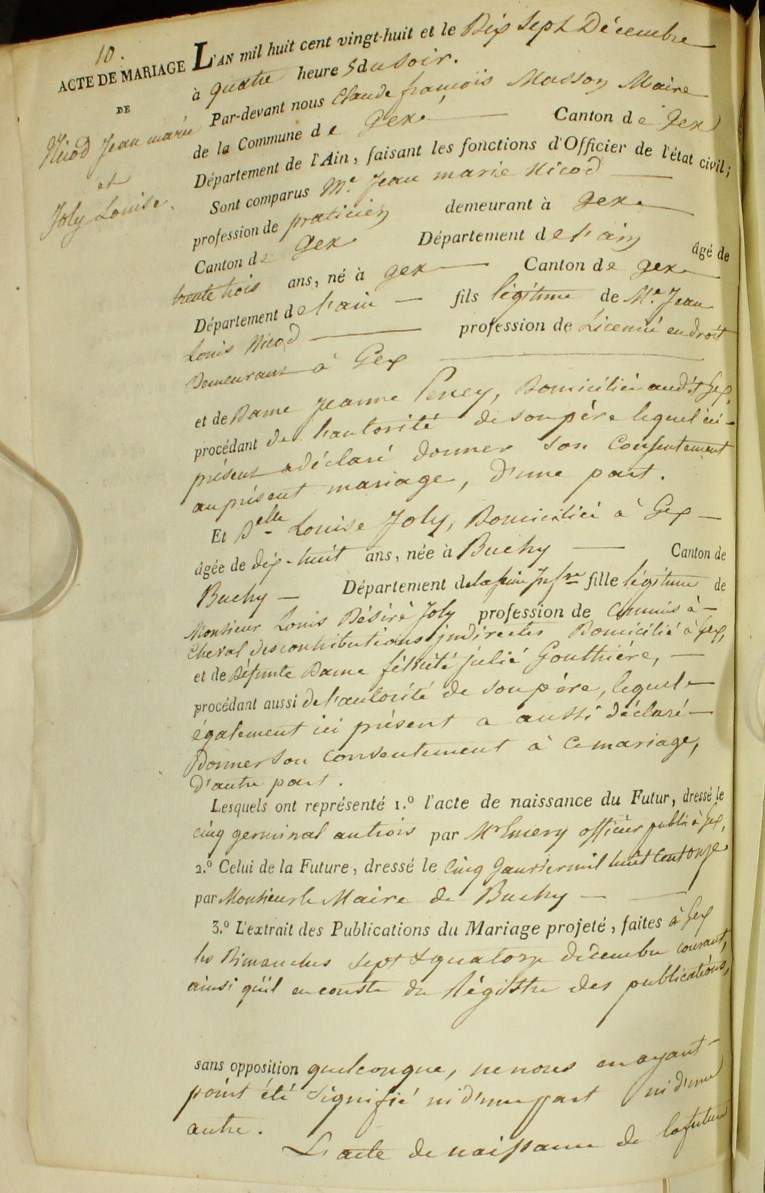 10.
ACTE DE MARIAGE
DE
Nicod Jean marie
et
Joly Louise.
L'AN mil huit cent vingt-huit et le Dix Sept Décembre
à quatre heures du soir.
Par-devant nous Claude françois Masson Maire
de la Commune de Gex Canton de Gex
Département de l'Ain, faisant les fonctions d'Officier de l'état civil;
Sont comparus Me Jean marie Nicod
profession de praticien demeurant à Gex
Canton de Gex Département de l'ain âgé de
trente trois ans, né à gex Canton de gex
Département de l'ain fils légitime de Me Jean
Louis Nicod profession de Licencié en droit
Demeurant à Gex
et de Dame Jeanne Peney, Domiciliée audit Gex,
procédant de l'autorité de son père lequel ici
présent a déclaré donner son Consentement
au présent mariage, d'une part.
Et Delle Louise Joly, Domiciliée à Gex
âgée de dix-huit ans, née à Buchy Canton de
Buchy Département de la seine Infre fille légitime de
Monsieur Louis Désiré Joly profession de Commis à
Cheval des contributions indirectes Domicilié à Gex,
et de Défunte Dame félicité julié Gouthière,
procédant aussi de l'autorité de son père, lequel
également ici présent a aussi déclaré
Donner son consentement à ce mariage,
D'autre part.
Lesquels ont représenté 1.º l'acte de naissance du Futur, dressé le
cinq germinal an trois par Mr Emery officier public à Gex,
2.º Celui de la Future, dressé le Cinq Janvier mil huit Cent onze
par Monsieur le Maire de Buchy
3.º L'extrait des Publications du Mariage projeté, faites à Gex
les Dimanches sept & quatorze décembre courant,
ainsi qu'il en conste du Régistre des publications,
sans opposition quelconque, ne nous en ayant
point été signifié ni d'une part ni d'une
autre.
L'acte de naissance de la future